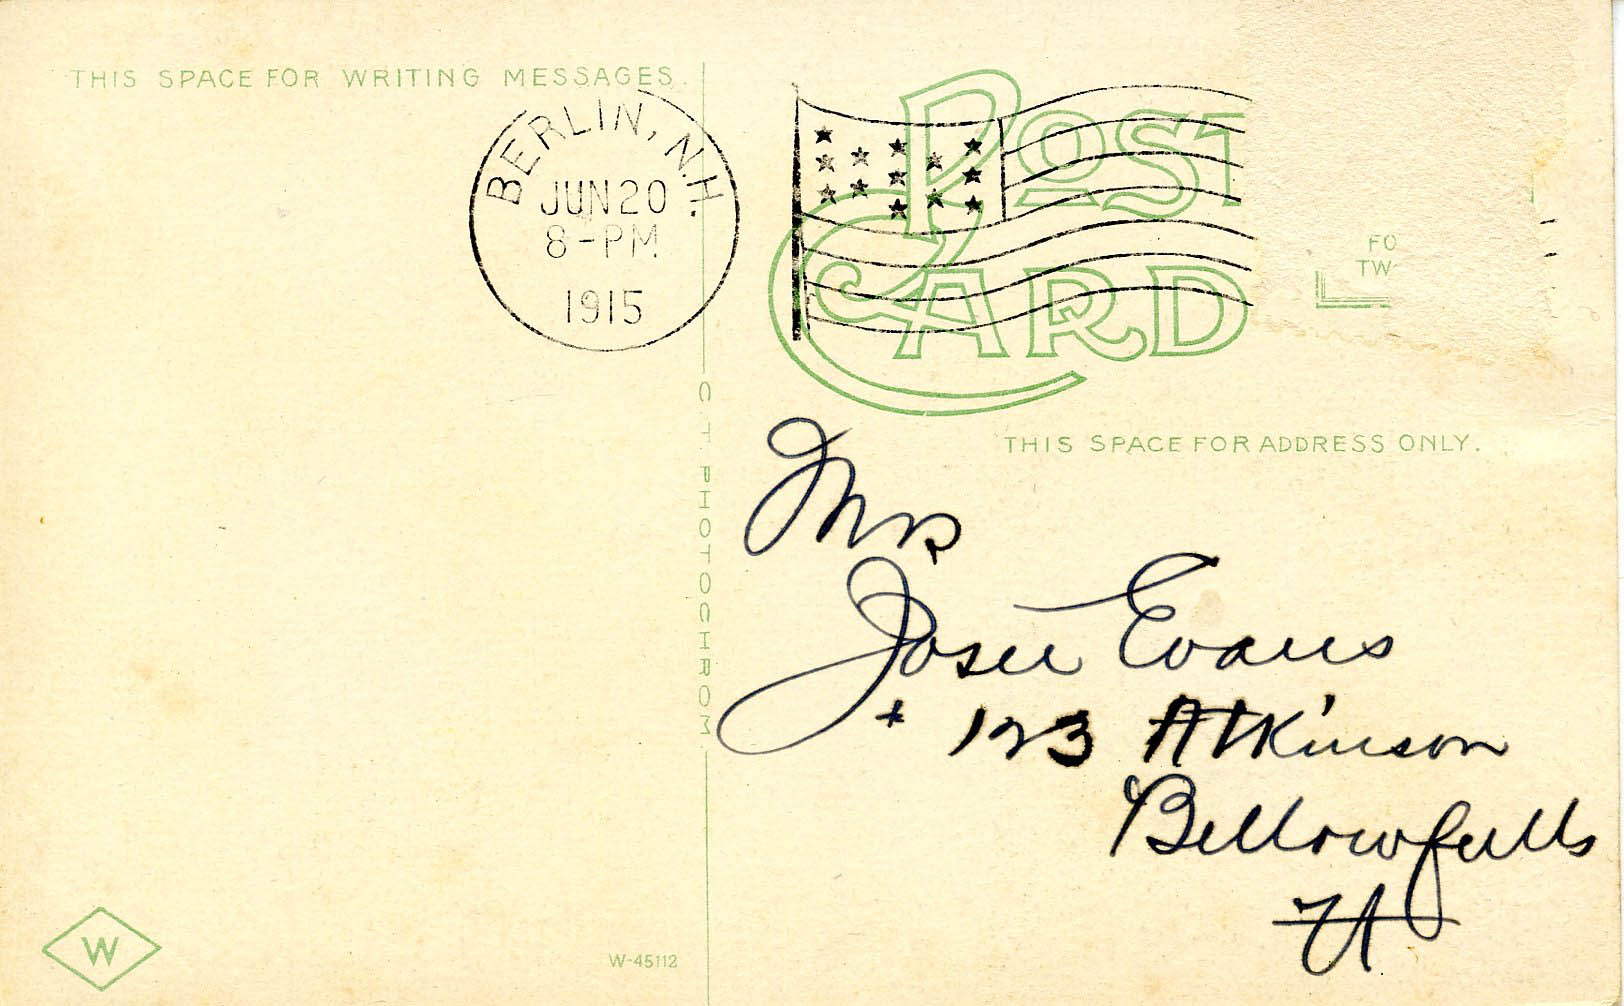 THIS SPACE FOR WRITING MESSAGES.
BERLIN, N.H.
JUN 20
8-PM
1915
POST
CARD
FO
TW
THIS SPACE FOR ADDRESS ONLY.
C T PHOTOCHROM
Mrs
Josie Evans
+ 123 Atkinson
Bellowfalls
Vt
W
W-45112